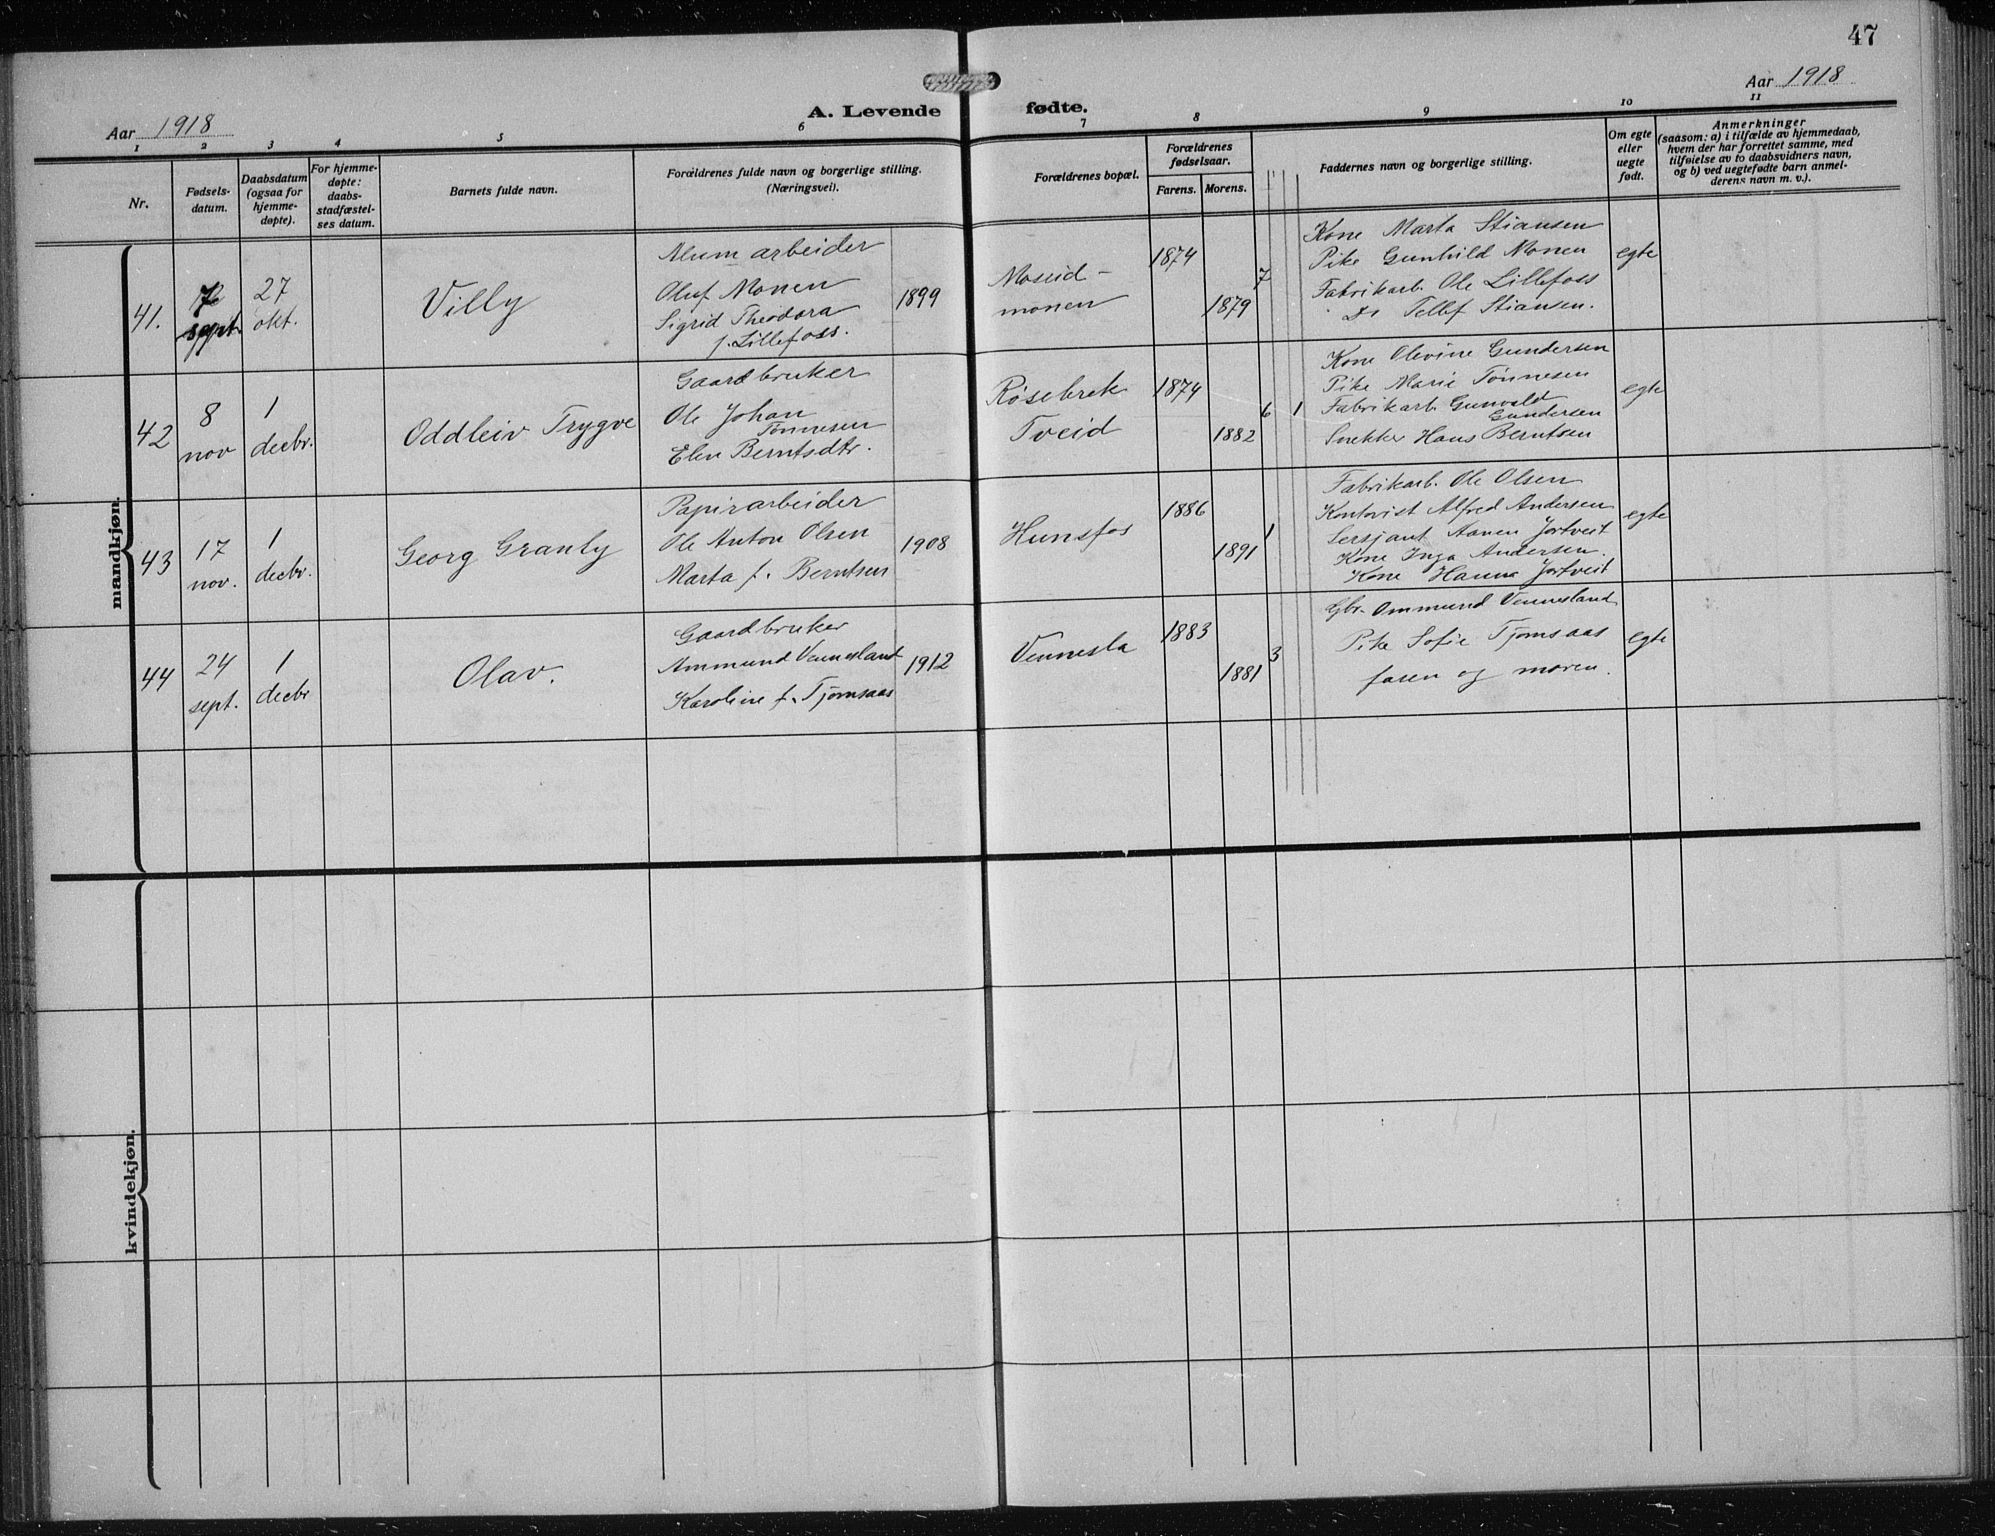 47
Aar 1918
Aar 1918
A. Levende fødte.
1 2 3 4 5 6 7 8 9 10 11
Nr.
Fødsels-
datum.
Daabsdatum
(ogsaa for
hjemme-
døpte).
For hjemme-
døpte:
daabs-
stadfæstel-
ses datum.
Barnets fulde navn.
Forældrenes fulde navn og borgerlige stilling.
(Næringsvei).
Forældrenes bopæl.
Forældrenes
fødselsaar.
Farens. Morens.
Faddernes navn og borgerlige stilling.
Om egte
eller
uegte
født.
Anmerkninger
(saasom: a) i tilfælde av hjemmedaab,
hvem der har forrettet samme, med
tilføielse av to daabsvidners navn,
og b) ved uegtefødte barn anmel-
derens navn m. v.).
mandkjøn.
41.
sept.
27
okt.
Villy
Alum arbeider
Oluf Monen
Sigrid Theodora
f. Lillefoss.
1899
Moseid-
monen
1874
1879
7
Kone Marta Stiansen
Pike Gunhild Monen
Fabrikarb. Ole Lillefoss
Do Tellef Stiansen.
egte
42
8
nov
1
decbr.
Oddleiv Trygve
Gaardbruker
Ole Johan
Tønnesen
Elen Berntsdtr.
Røsebrek
Tveid
1874
1882
6 1
Kone Olevine Gundersen
Pike Marie Tønnesen
Fabrikarb. Gunvald
Gundersen
Snekker Hans Berntsen
egte
43
17
nov.
1
decbr.
Georg Granly
Papirarbeider
Ole Anton Olsen
Marta f. Berntsen
1908
Hunsfos
1886
1891
1
Fabrikarb. Ole Olsen
Kontorist Alfred Andersen
Sersjant Aanen Jortveit
Kone Inga Andersen.
Kone Hanna Jortveit
egte
44
24
sept.
1
decbr
Olav.
Gaardbruker
Ammund Vennesland
Karoline f. Tjomsaas
1912
Vennesla
1883
1881
3
Gbr. Ommund Vennesland
Pike Sofie Tjomsaas
faren og moren.
egte
kvindekjøn.